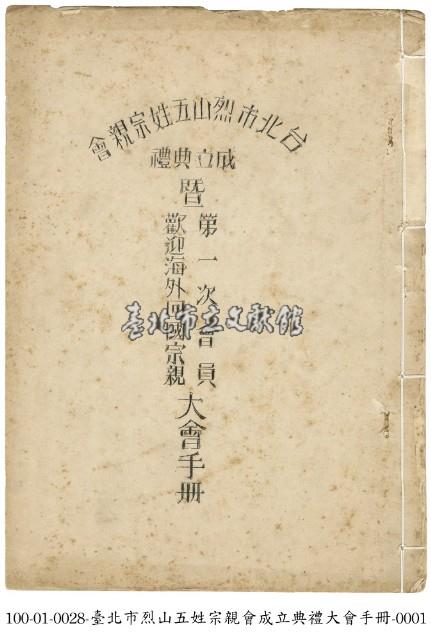 台北市烈山五姓宗親會
成立典禮
暨
第一次會員
歡迎海外回國宗親
大會手冊
臺北市立文獻館
100-01-0028-臺北市烈山五姓宗親會成立典禮大會手冊-0001